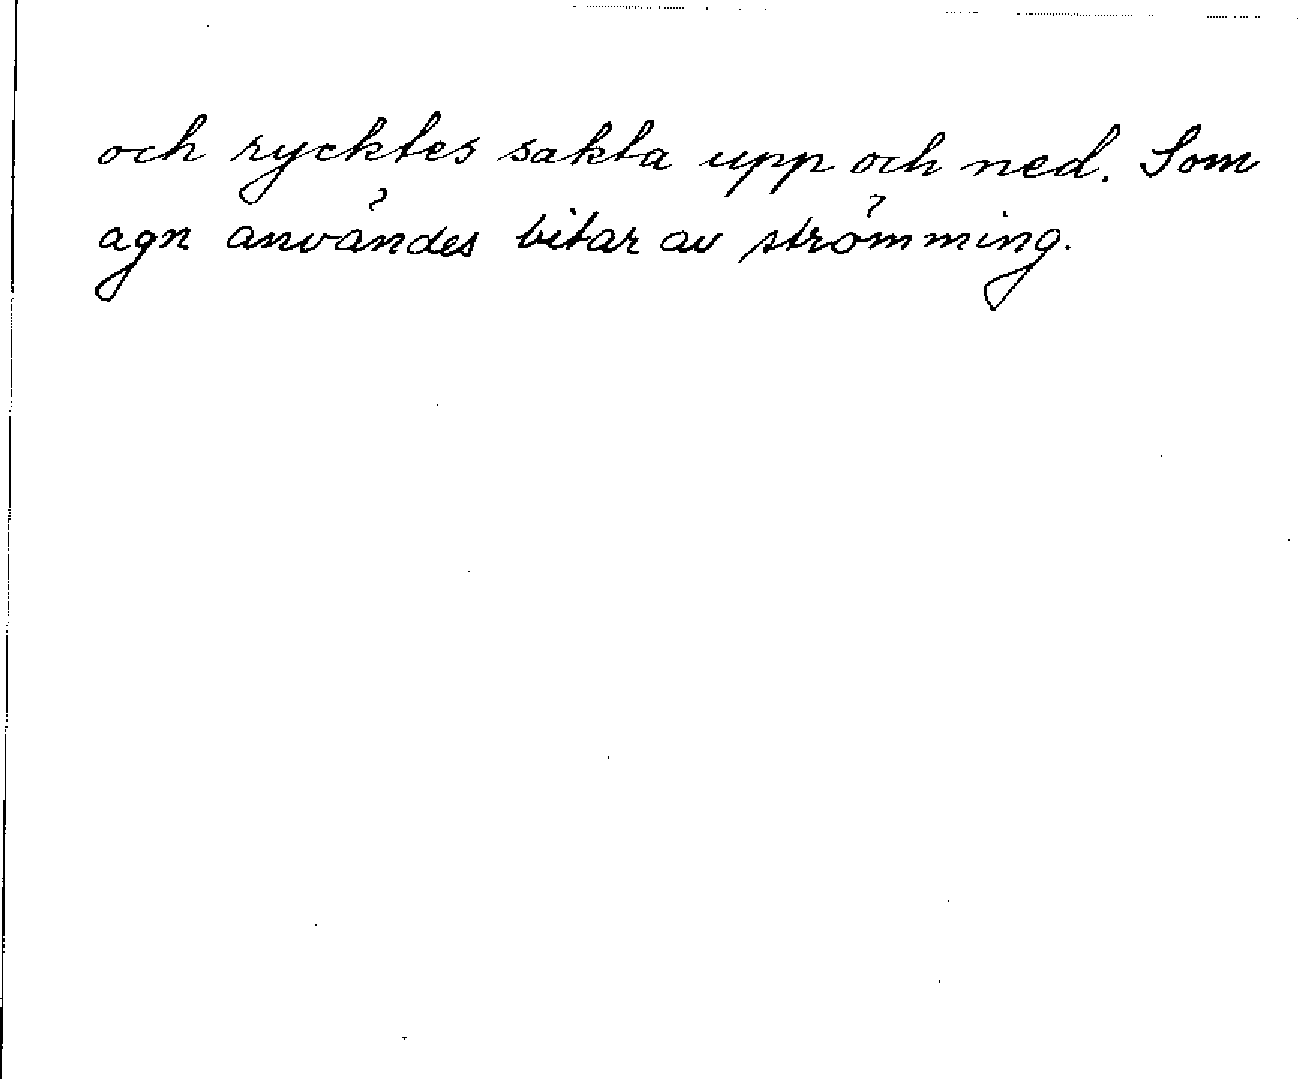 och rycktes sakta upp och ned. Som
agn användes bitar av strömming.